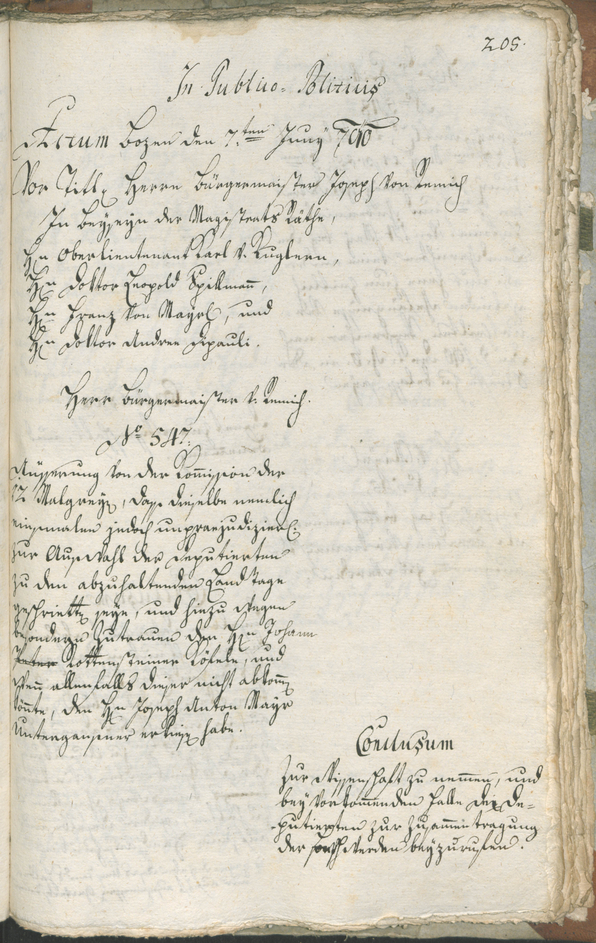 205.
In Publico-Politicis
Actum Bozen den 7.ten Juny 790
Vor Titl. Herrn Bürgermaister Joseph von Remich
In Beyseyn der Magistrats Räthe,
Hn Oberlieutenant Karl v. Kuglern,
Hn Doktor Leopold Spitlmann,
Hn Franz von Mayrl, und
Hn Doktor Andree Dipauli.
Herr Bürgermaister v. Remich.
No 547.
Äusserung von der Kommission der
12 Malgreyen, dass dieselbe nemlich
einsmalen jedoch unpraejudizierl.
zur Auswahl der Deputierten
zu den abzuhaltenden Landtage
geschritten seye, und hiezu wegen
besondern Zutrauen den Hn Johann
Rottensteiner Löfele, und
wenn allenfalls dieser nicht abkommen
könnte, den Hn Joseph Anton Mayr
Unterganzner erkiesen habe.
Conclusum
Zur Wissenschaft zu nemmen, und
bey vorkommenden Falle die De-
putierten zur Zusammentragung
der Beschwerden beyzurufen.